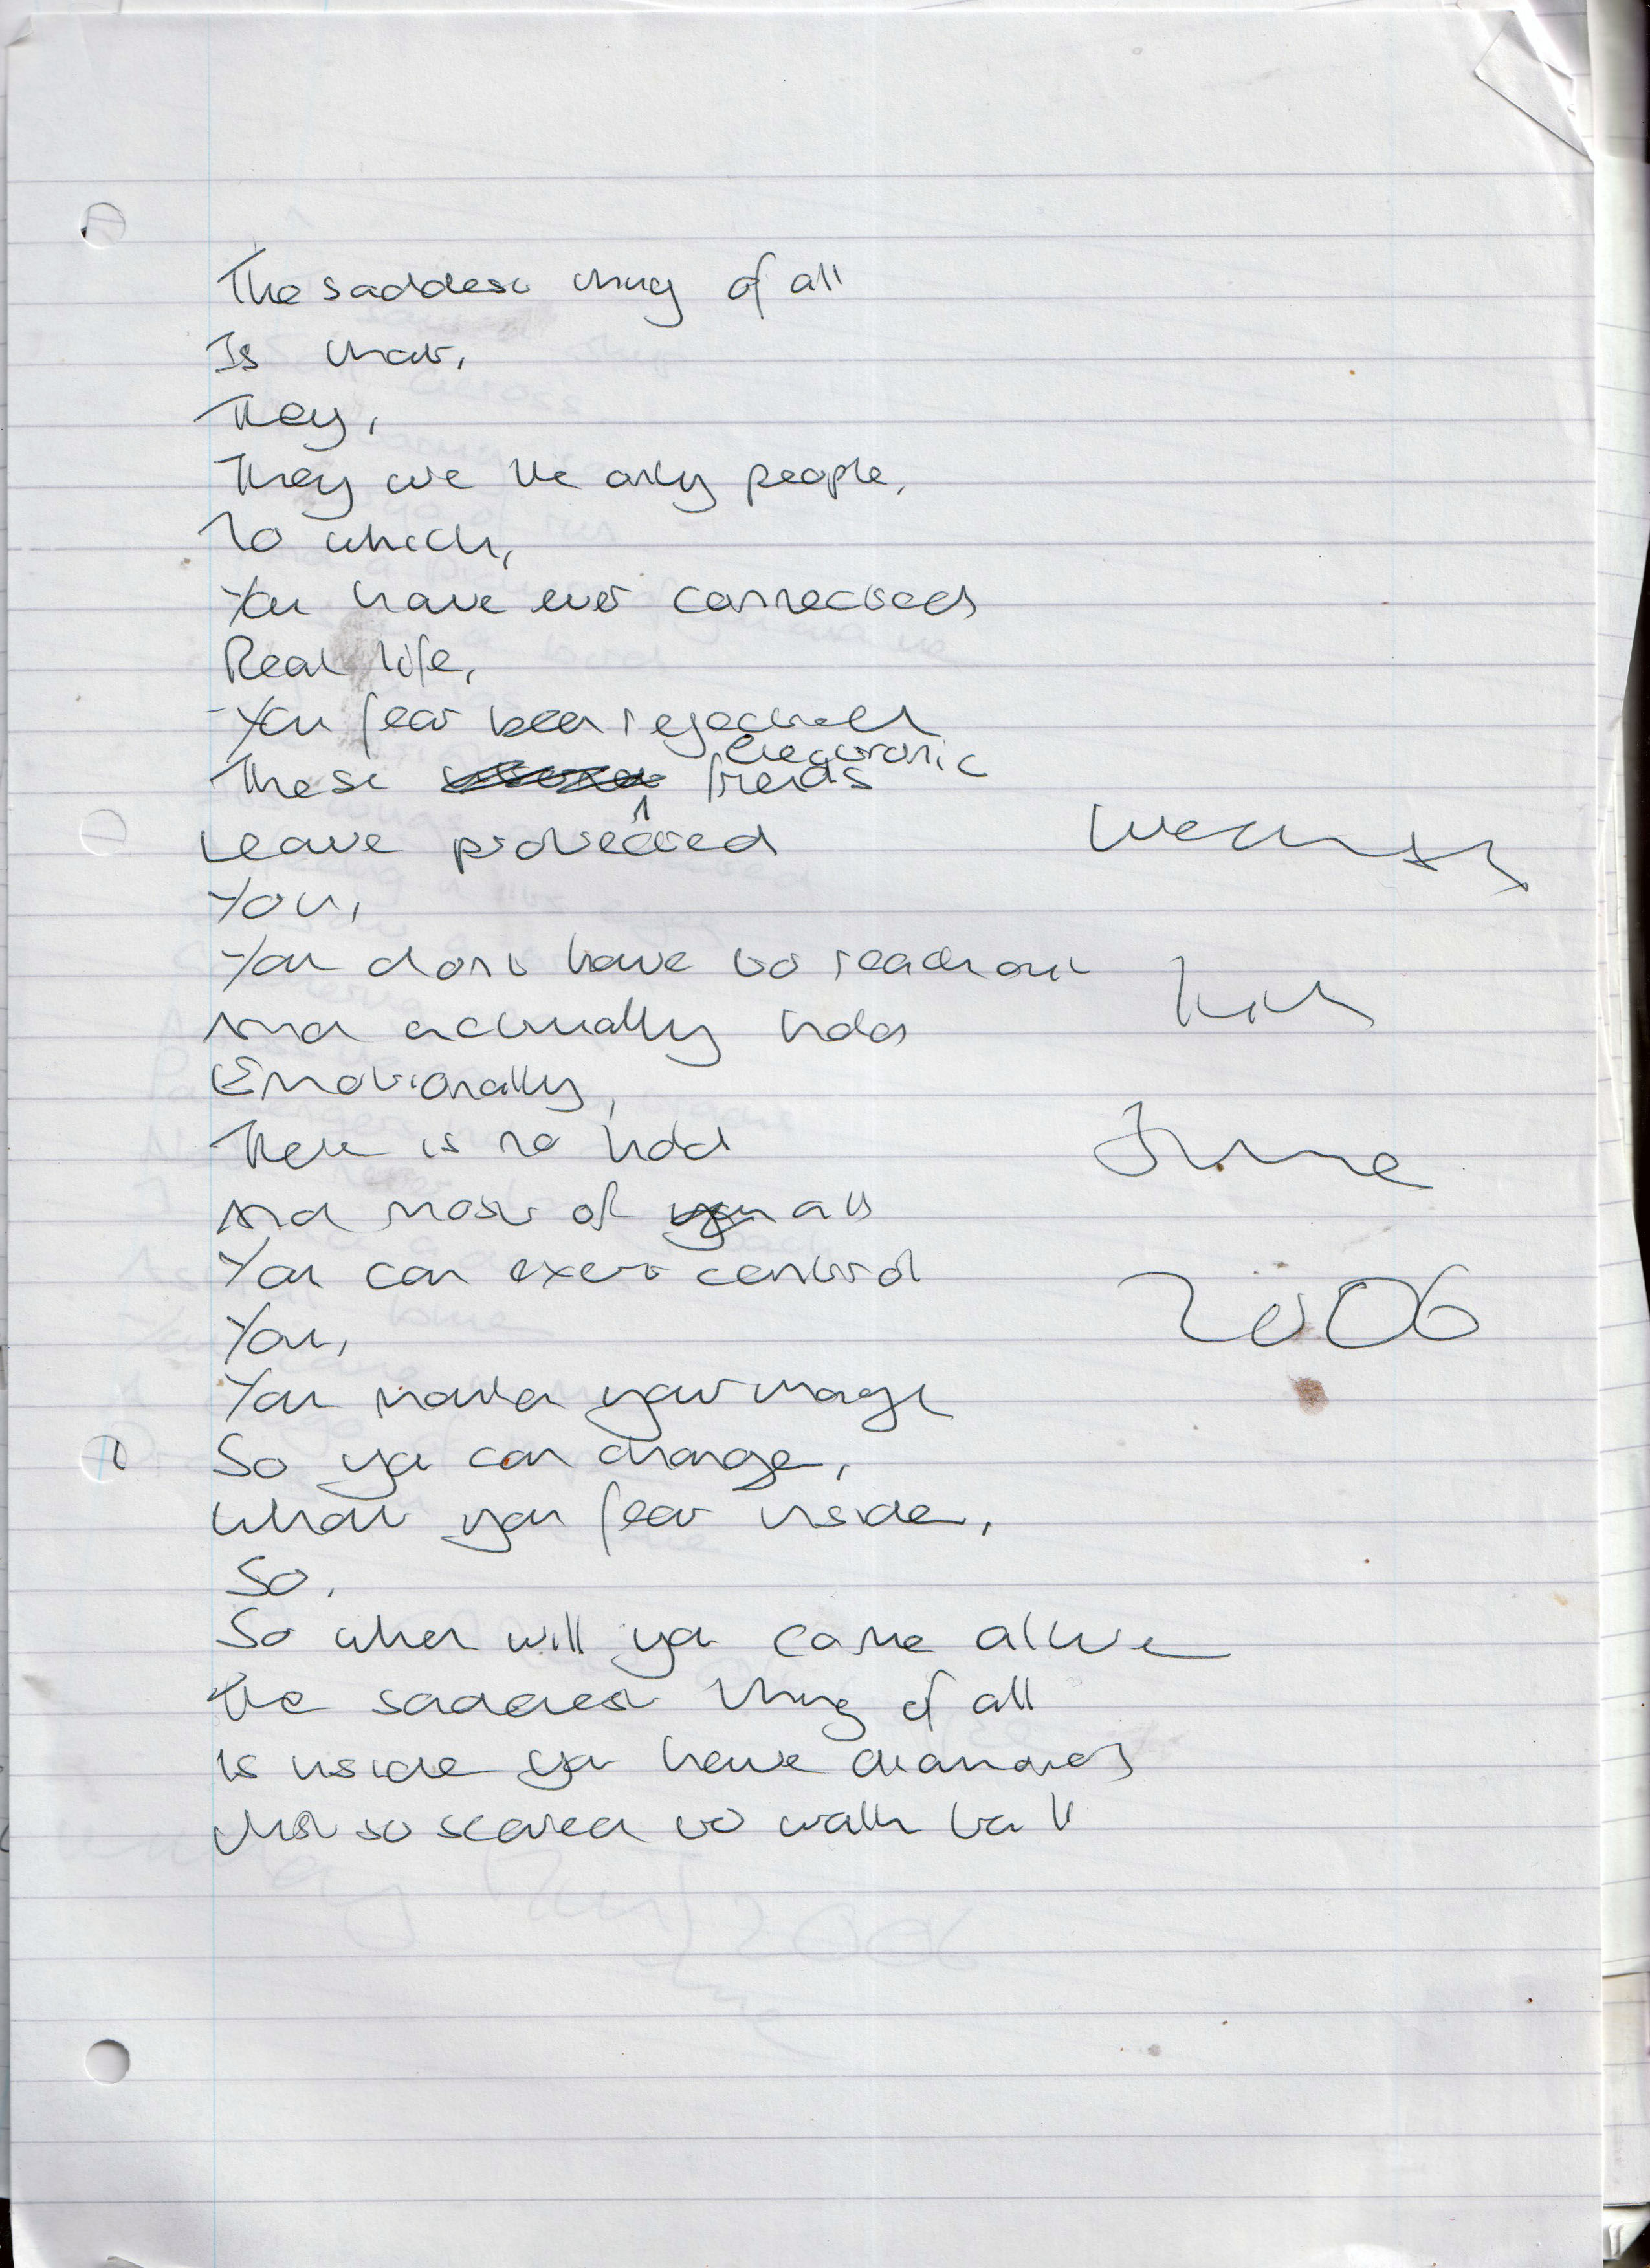 The saddest thing of all
Is that,
They,
They are the only people,
To which,
You have ever connected
Real life,
You fear been rejected
These electronic friends
Leave protected
You,
You dont have to reach out
And actually hold
Emotionally,
There is no hold
And most of all
You can exert control
You,
You your image
So you can change,
What you fear inside,
So,
So when will you come alive
The saddest thing of all
Is inside you have diamonds
Just so scared to walk tall
June
2006